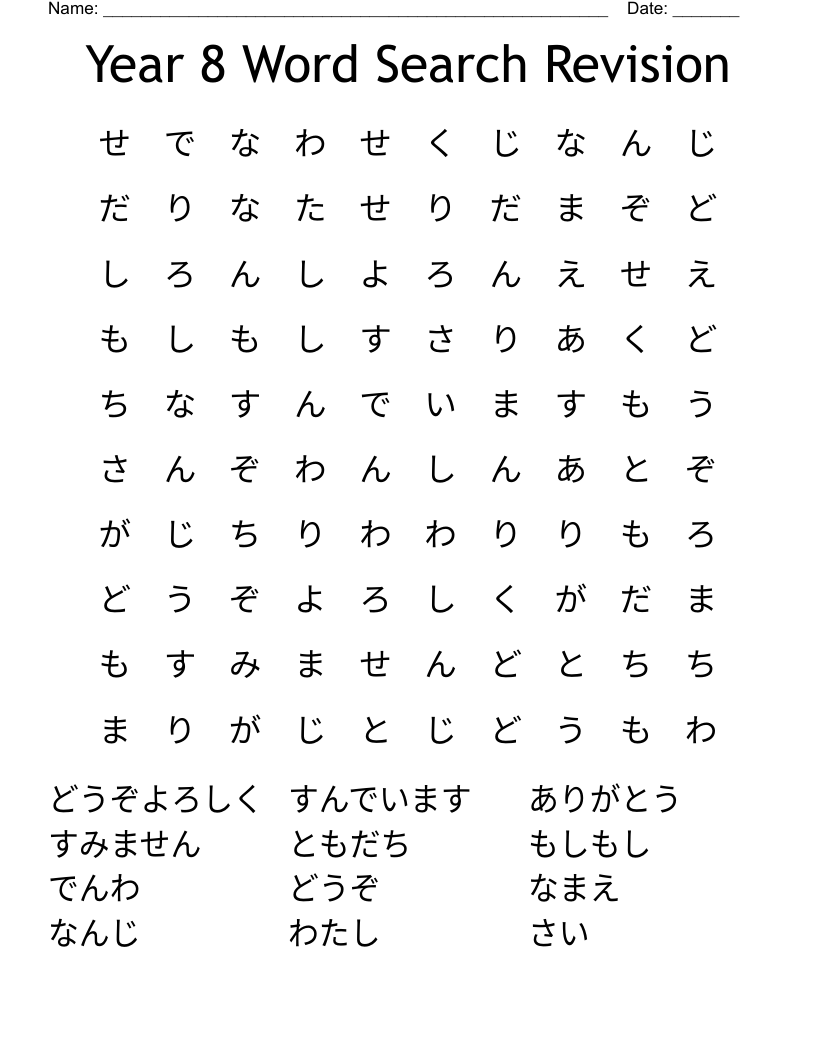 Name: _____________________________________________________ Date: _______
Year 8 Word Search Revision
せ で な わ せ く じ な ん じ
だ り な た せ り だ ま ぞ ど
し ろ ん し よ ろ ん え せ え
も し も し す さ り あ く ど
ち な す ん で い ま す も う
さ ん ぞ わ ん し ん あ と ぞ
が じ ち り わ わ り り も ろ
ど う ぞ よ ろ し く が だ ま
も す み ま せ ん ど と ち ち
ま り が じ と じ ど う も わ
どうぞよろしく すんでいます ありがとう
すみません ともだち もしもし
でんわ どうぞ なまえ
なんじ わたし さい